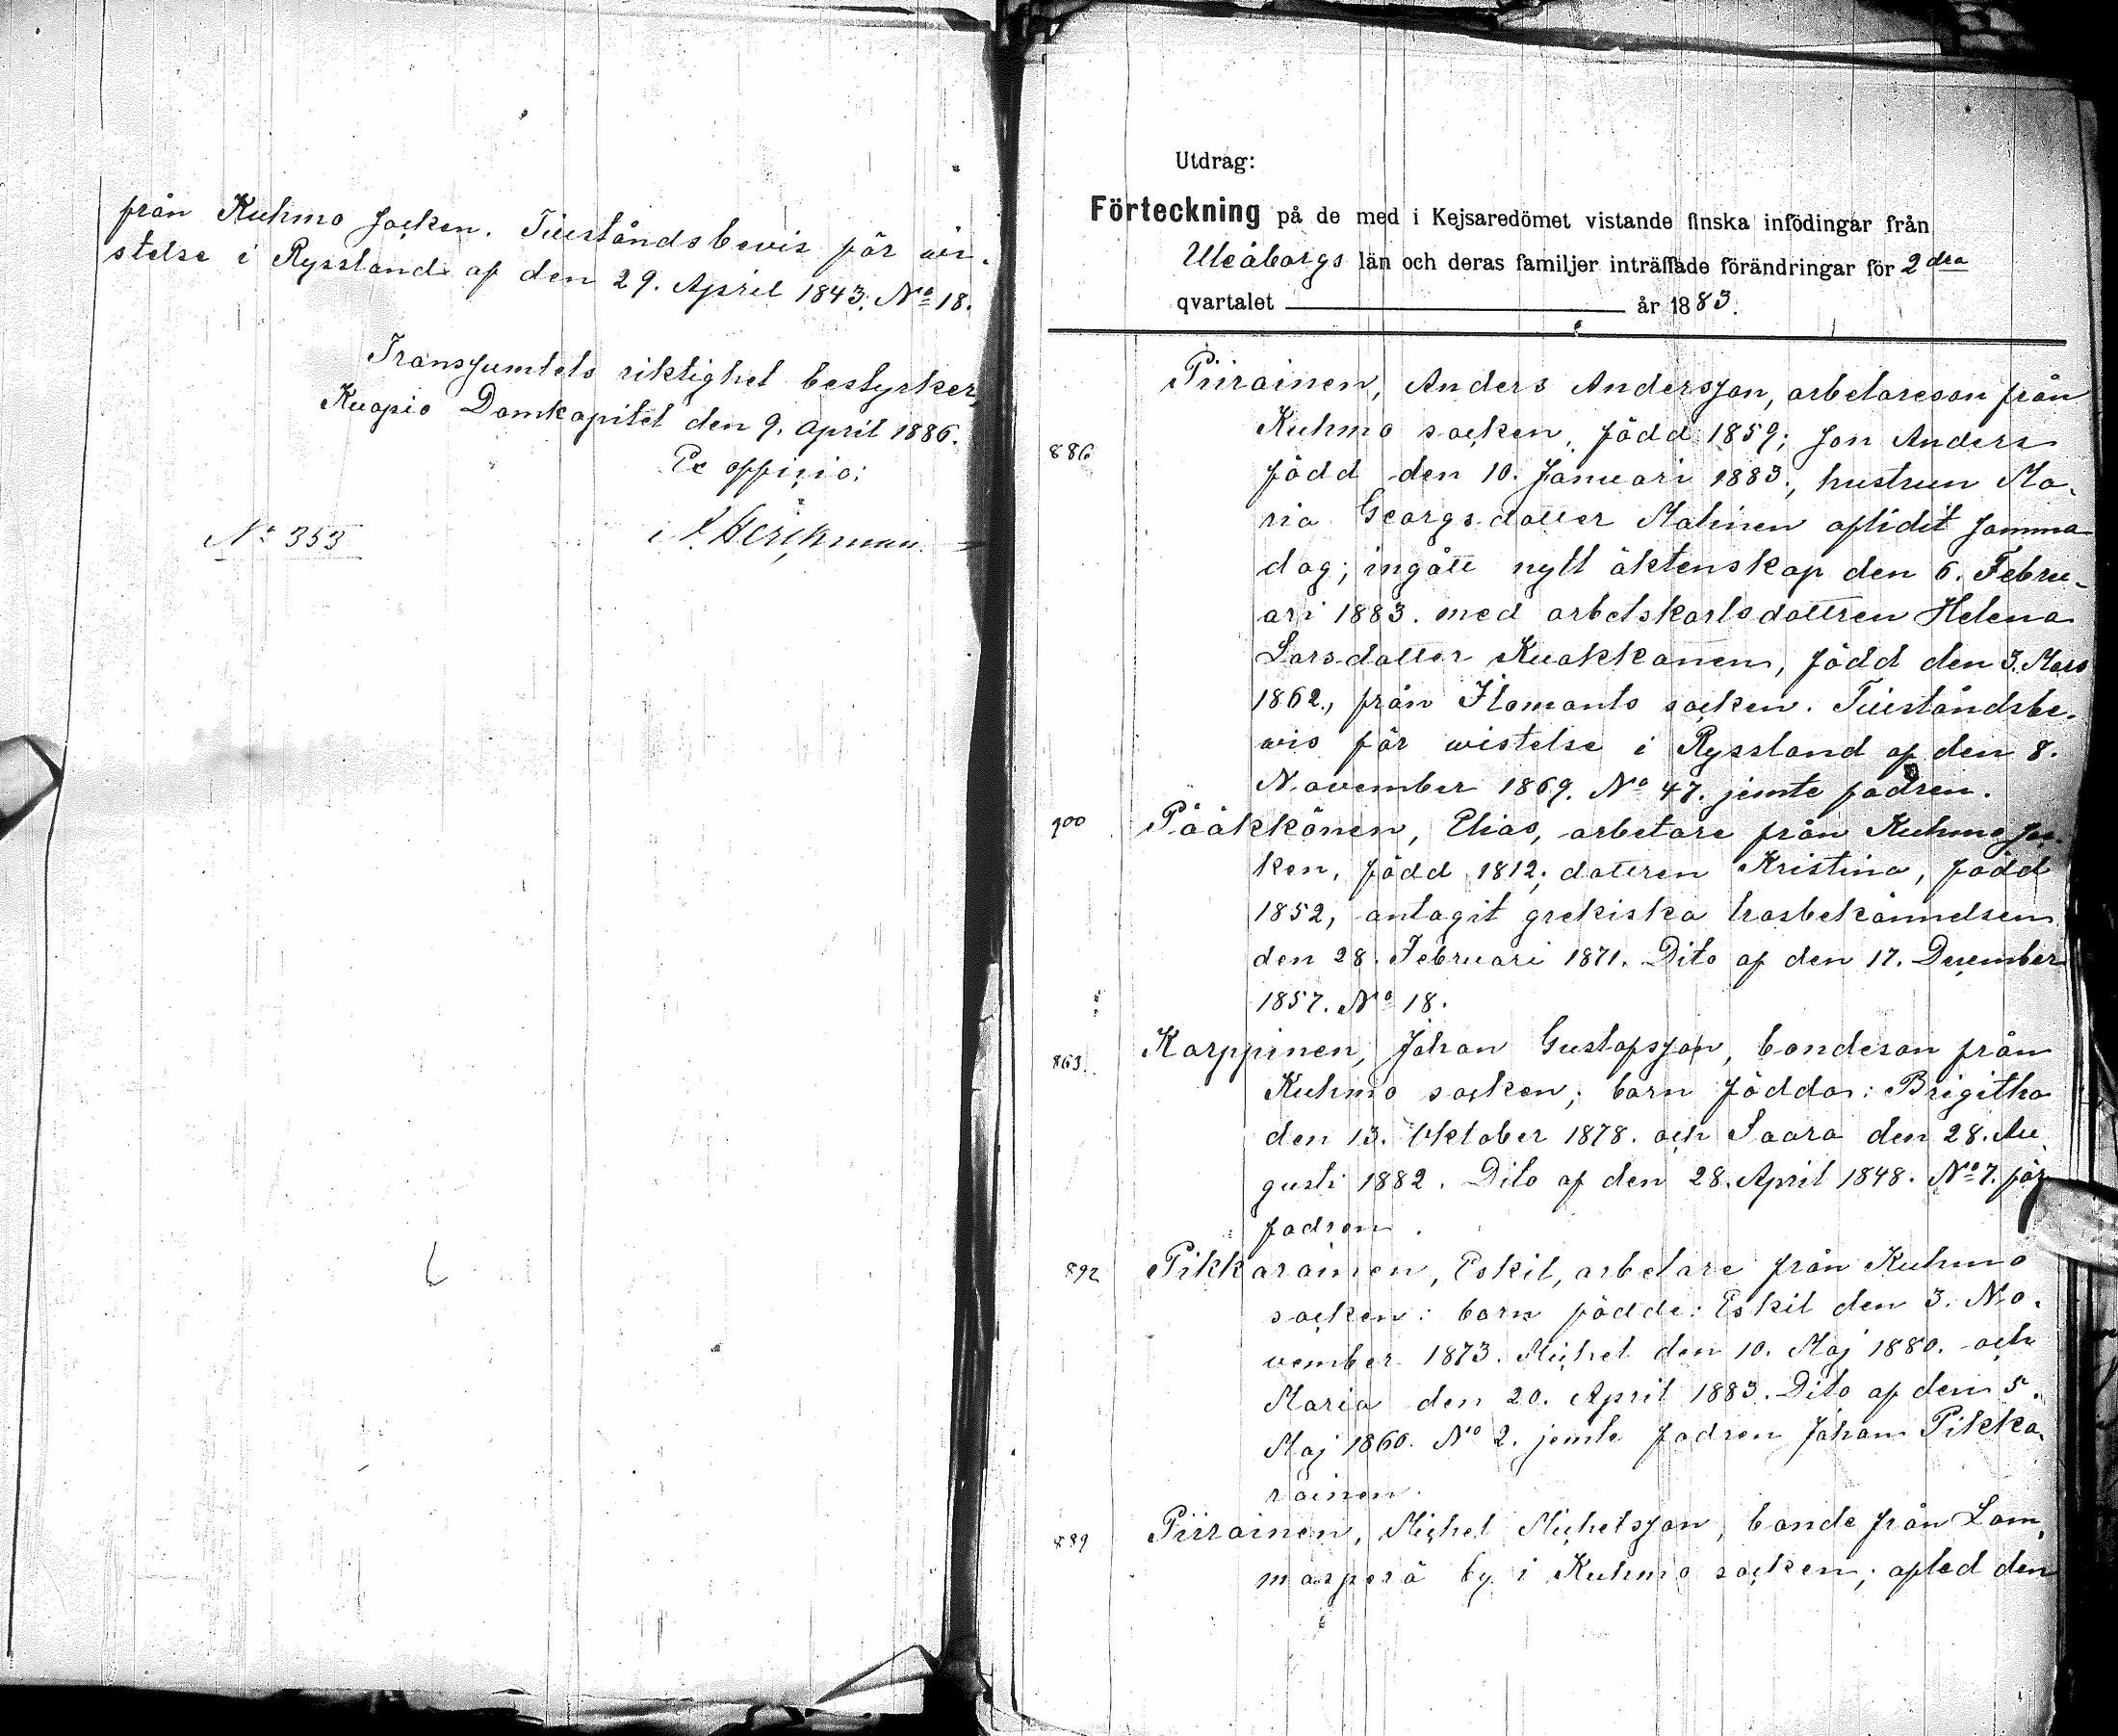 från Kuhmo socken. Tillståndsbevis för vi-
stelse i Ryssland af den 29. April 1843. No 18.
Transsumtets riktighet bestyrker,
Kuopio Domkapitel den 9. April 1886.
Ex officio:
No 353
Utdrag:
Förteckning på de med i Kejsaredömet vistande finska infödingar från
Uleåborgs län och deras familjer inträffade förändringar för 2dra
qvartalet år 1883.
Piirainen, Anders Andersson, arbetareson från
886
Kuhmo socken, född 1859; son Anders
född den 10. Januari 1883., hustrun Ma-
ria Georgsdotter Malinen aflidit samma
dag; ingått nytt äktenskap den 6. Febru-
ari 1883. med arbetskarlsdottren Helena
Larsdotter Kuakkanen, född den 3. Mars
1862., från Ilomants socken. Tillståndsbe-
vis för vistelse i Ryssland af den 8.
November 1869. No 47. jemte fadren.
900 Pääkkönen, Elias, arbetare från Kuhmo soc-
ken, född 1812; dottren Kristina, född
1852, antagit grekiska trosbekännelsen
den 28. Februari 1871. Dito af den 17. December
1857. No 18.
863. Karppinen, Johan Gustafsson, bondeson från
Kuhmo socken; barn födda: Brigitha
den 13. Oktober 1878. och Saara den 28. Au-
gusti 1882. Dito af den 28. April 1848. No 7. för
fadren.
892 Pikkarainen, Eskil, arbetare från Kuhmo
socken: barn födde: Eskil den 3. No-
vember 1873. Michel den 10. Maj 1880. och
Maria den 20. April 1883. Dito af den 5.
Maj 1860. No 2. jemte fadren Johan Pikka-
rainen.
889 Piirainen, Michel Michelsson, bonde från Lam-
masperä by i Kuhmo socken; afled den